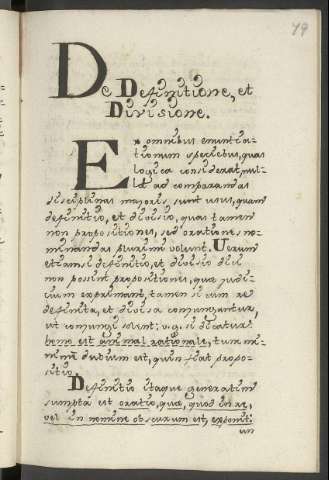 79
De Definitione, et
Divisione.
Ex omnibus enuntia-
tionum speciebus, quas
logica considerat, nul-
læ ad comparandas
disciplinas majoris sunt usus, quam
definitio, et divisio, quas tamen
non propositiones, sed orationes no-
minandas plurimi volunt. Verum
etiamsi definitio, et divisio dici
non possint propositiones, quæ judi-
cium exprimant, tamen si cum re
definita, et divisa conjungantur,
ut conjungi solent: v.g. si dicatur
homo est animal rationale, tum mi-
nime dubium est, quin fiat propo-
sitio.
Definitio itaque generatim
sumpta est oratio, quæ, quod in re,
vel in nomine obscurum est, exponit:
un